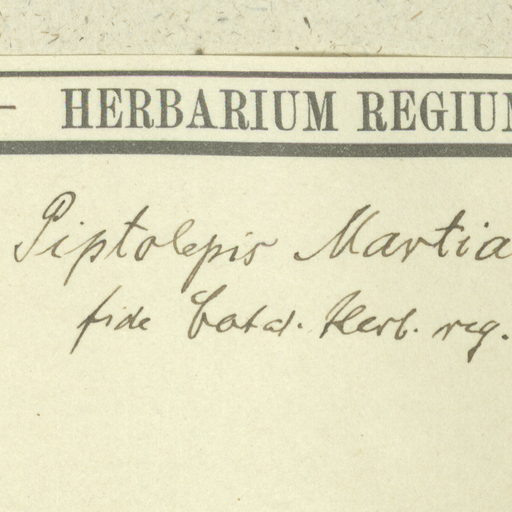 – HERBARIUM REGIUM
Piptolepis Martia
fide Catal. Herb. reg.